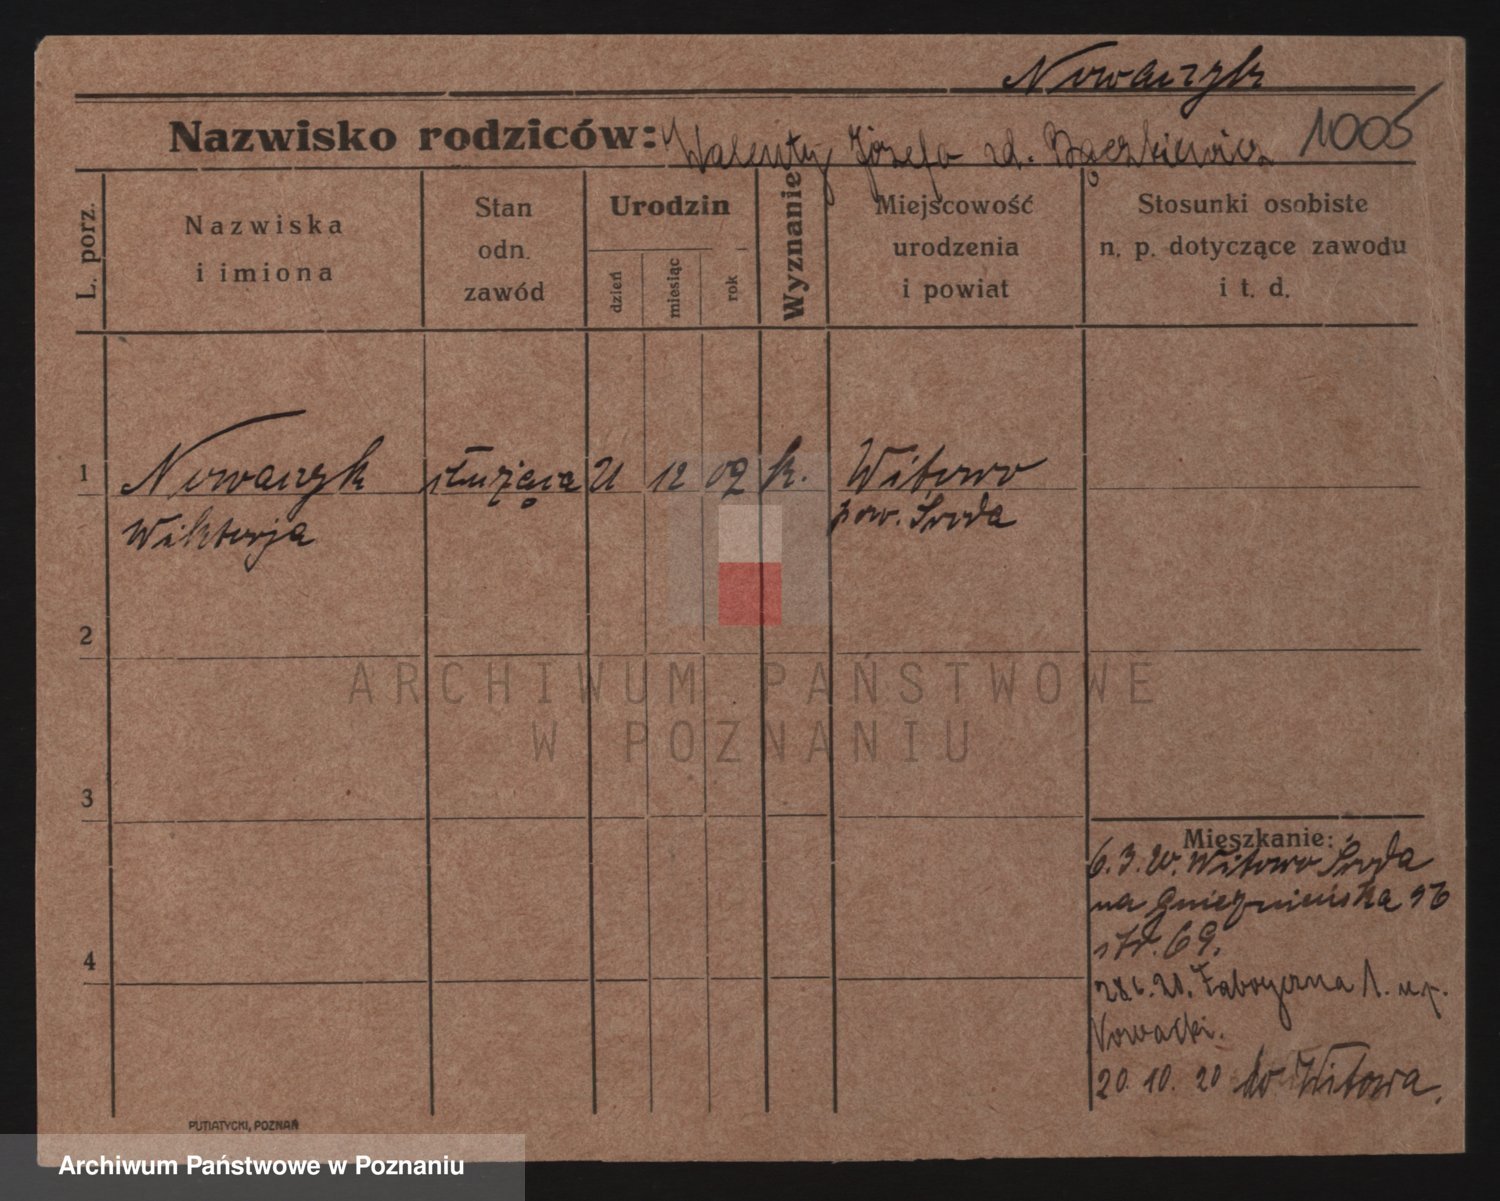 Nowaczyk
Nazwisko rodziców: Walenty Józefa zd. Bączkiewicz 1005
L. porz.
Nazwiska
i imiona
Stan
odn.
zawód
Urodzin
dzień
miesiąc
rok
Wyznanie
Miejscowość
urodzenia
i powiat
Stosunki osobiste
n. p. dotyczące zawodu
i t. d.
1 Nowaczyk służąca 12 02 k. Witowo
Wiktorja pow. Środa
2
ARCHIWUM PAŃSTWOWE
W POZNANIU
3
Mieszkanie:
6.3.20. Witowo Środa
na Gnieźnieńska
str. 69.
4
28.6.20. 1.
Nowacki.
20. 10. 20 do Witowa.
PUTIATYCKI, POZNAŃ
Archiwum Państwowe w Poznaniu